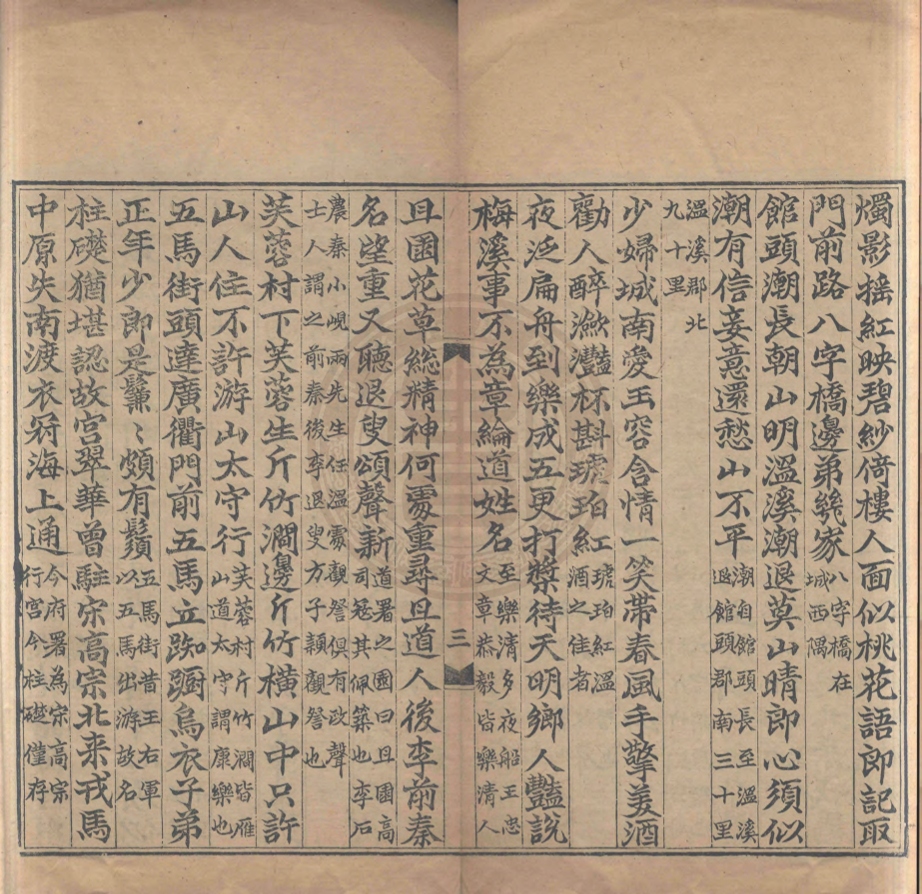 燭影摇紅映碧紗倚樓人面似桃花語郎記取
門前路八字橋邊弟幾家八字橋在城西隅
館頭潮長朝山明溫溪潮退莫山晴郎心須似
潮有信妾意還愁山不平潮自館頭長至溫溪退館頭郡南三十里
溫溪郡北九十里
少婦城南愛玉容含情一笑带春風手擎美酒
勸人醉瀲灩杯斟琥珀紅琥珀紅溫酒之佳者
夜泛扁舟到樂成五更打槳待天明鄉人豔説
梅溪事不為章綸道姓名至樂清多夜船王忠文章恭毅皆樂清人
三
且園花草総精神何處重尋且道人後李前秦
名望重又聽退叟頌聲新道署之園曰且園高司冦其佩築也李石
農秦小峴兩先生任溫處觀詧俱有政聲士人謂之前秦後李退叟方子穎觀詧也
芙蓉村下芙蓉生斤竹澗邊斤竹横山中只許
山人住不許游山太守行芙蓉村斤竹澗皆雁山道太守謂康樂也
五馬街頭達廣衢門前五馬立踟蹰烏衣子弟
正年少郎是鬑〻頗有鬚五馬街昔王右軍以五馬出游故名
柱礎猶堪認故宫翠華曾駐宋高宗北来戎馬
中原失南渡衣冠海上通今府署為宋高宗行宫今柱礎僅存